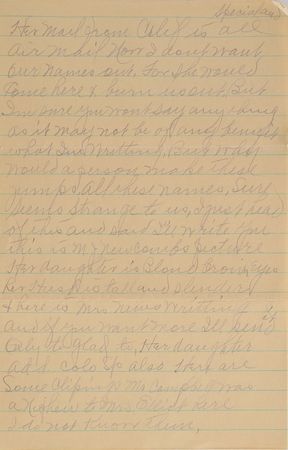 Special
Her Mail from Calif is all
air mail Now I dont want
Our names out. For she would
Come here & burn us out. But
I'm sure you wont say any thing
as it may not be of any benefit
what I'm Writting, But why
would a person make these
jumps all these names, Sure
seems strange to us, I just read
of this and said I'll write you
this is Mr Newcombs Picture
Her daughter is Blond Brown Eyes
her Husb is tall and slender
& here is Mrs News Writting
and if you want more I'll send it
Only to Glad to, Her daughter
add. Colo Sp also Here are
Some
a Nephew to Mrs Elliot here
I do not Know them,